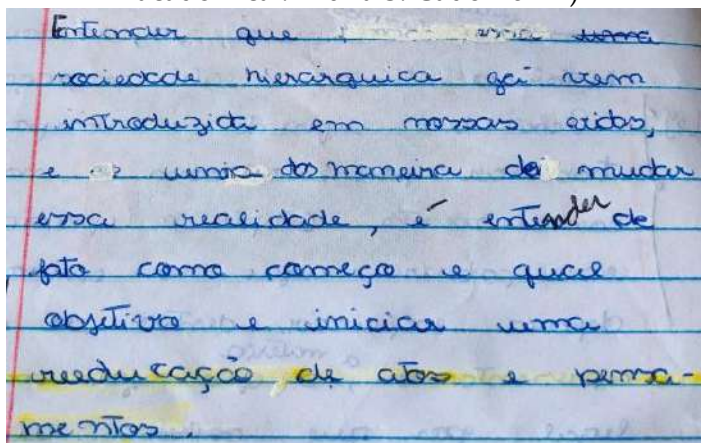 Entender que essa
sociedade hierarquica gá vem
introduzida em nossas vidas,
e uma das maneira de mudar
essa realidade, é entender de
fato como começo e qual
objetivo e iniciar uma
reeducação de atos e pensa-
mentos.